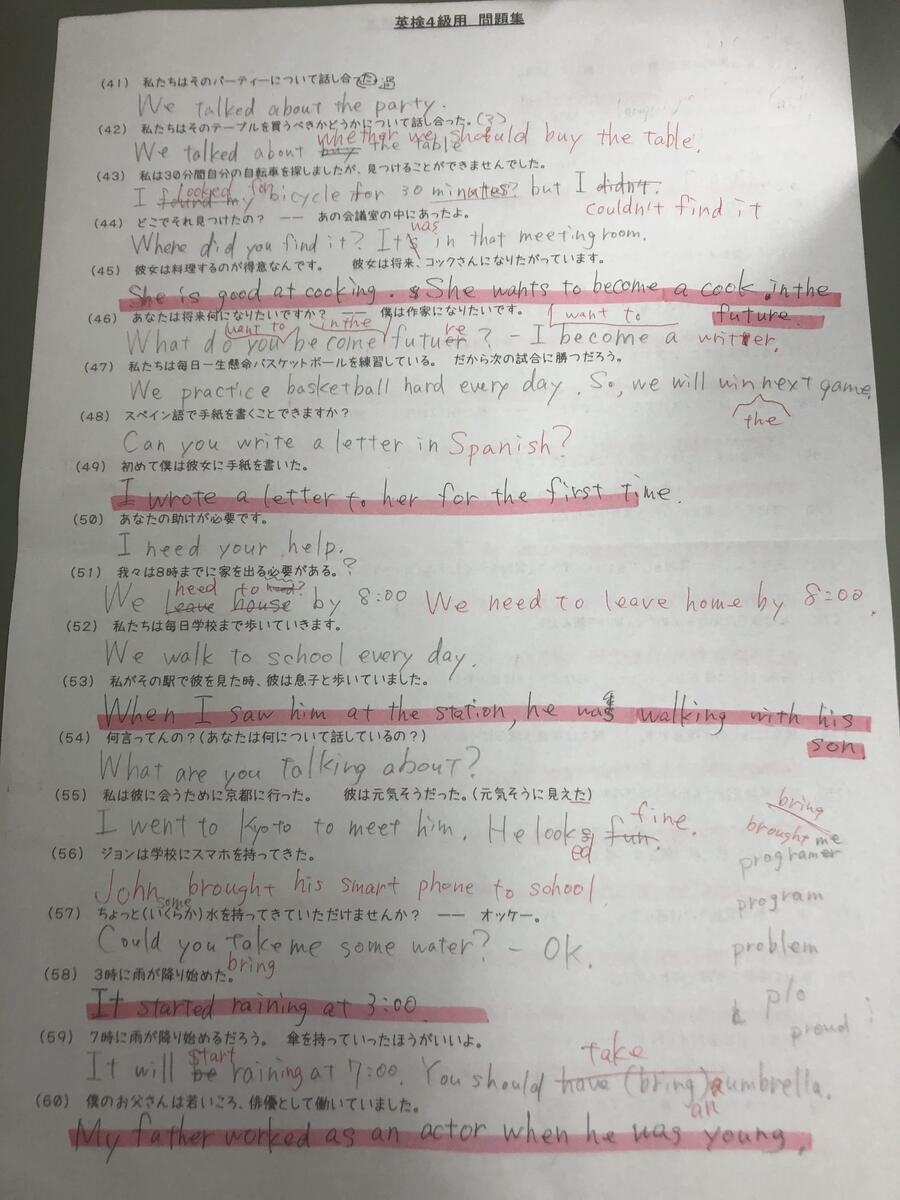 英検4級用 問題集
(41) 私たちはそのパーティーについて話し合った 過
We talked about the party.
(42) 私たちはそのテーブルを買うべきかどうかについて話し合った。(?)
whether we should buy the table.
We talked about buy the table
(43) 私は30分間自分の自転車を探しましたが、見つけることができませんでした。
looked for
I found my bicycle for 30 minutes? but I didn't.
couldn't find it
(44) どこでそれ見つけたの? ―― あの会議室の中にあったよ。
was
Where did you find it? It's in that meeting room.
(45) 彼女は料理するのが得意なんです。 彼女は将来、コックさんになりたがっています。
She is good at cooking. She wants to become a cook in the
future.
(46) あなたは将来何になりたいですか? ―― 僕は作家になりたいです。
want to in the want to
What do you become future? - I become a writer.
(47) 私たちは毎日一生懸命バスケットボールを練習している。 だから次の試合に勝つだろう。
We practice basketball hard every day. So, we will win next game.
the
(48) スペイン語で手紙を書くことできますか?
Can you write a letter in Spanish?
(49) 初めて僕は彼女に手紙を書いた。
I wrote a letter to her for the first time.
(50) あなたの助けが必要です。
I need your help.
(51) 我々は8時までに家を出る必要がある。?
need to need?
We leave house by 8:00 We need to leave home by 8:00.
(52) 私たちは毎日学校まで歩いていきます。
We walk to school every day.
(53) 私がその駅で彼を見た時、彼は息子と歩いていました。
When I saw him at the station, he was walking with his
son
(54) 何言ってんの?(あなたは何について話しているの?)
What are you talking about?
(55) 私は彼に会うために京都に行った。 彼は元気そうだった。(元気そうに見えた)
fine.
I went to Kyoto to meet him. He looks fun.
ed
bring
brought me
programer
(56) ジョンは学校にスマホを持ってきた。
John brought his smart phone to school
program
some
(57) ちょっと(いくらか)水を持ってきていただけませんか? ―― オッケー。
Could you take me some water? - Ok.
problem
bring
(58) 3時に雨が降り始めた。
It started raining at 3:00.
plo
proud
(59) 7時に雨が降り始めるだろう。 傘を持っていったほうがいいよ。
start take
It will be raining at 7:00. You should have (bring) a umbrella.
an
(60) 僕のお父さんは若いころ、俳優として働いていました。
My father worked as an actor when he was young.